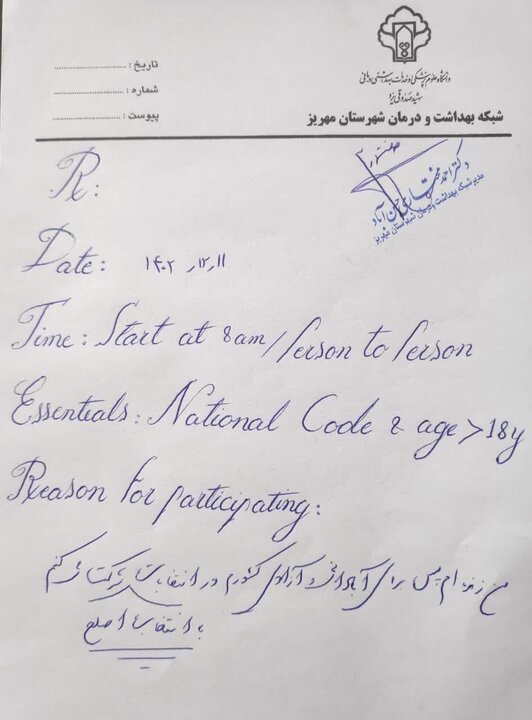 دانشگاه علوم پزشکی و خدمات بهداشتی درمانی
شهید صدوقی یزد
شبکه بهداشت و درمان شهرستان مهریز
تاریخ : ..............
شماره : ..............
پیوست : ..............
دکتر احمد
مدیر شبکه بهداشت و درمان شهرستان مهریز
Rx:
Date: ۱۴۰۲ ,۱۲ ,۱۱
Time: Start at 8am/Person to Person
Essentials: National Code & age >18y
Reason for participating:
من زنده ام پس برای آبادانی و آزادی کشورم در انتخابات شرکت می کنم
با انتخاب اصلح